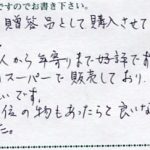 ですのでお書き下さい。
贈答品として購入させて
人から年寄りまで好評です
スーパーで販売しており、
いです。
位の物もあったら良いな
た。